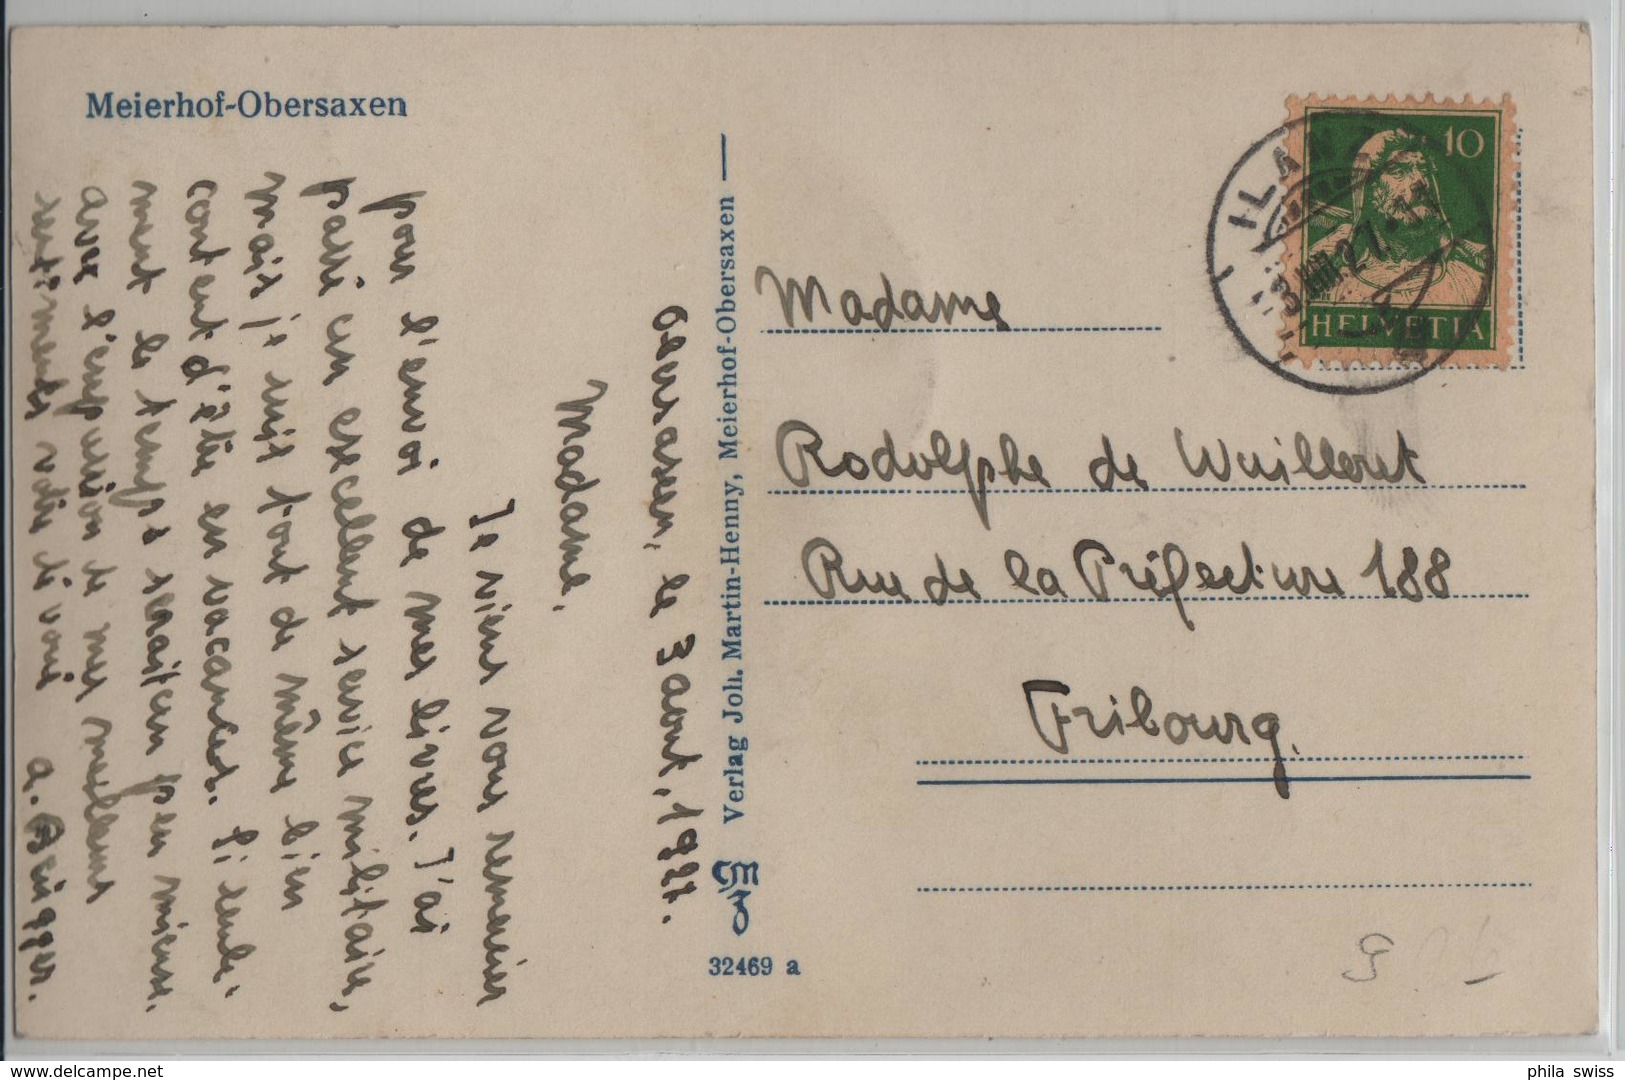 Meierhof-Obersaxen
Obersaxen, le 3 aout, 1927.
Madame,
Je viens vous remercier
pour l'envoi de mes livres. J'ai
passé un excellent service militaire,
mais je suis tout de même bien
content d'être en vacances. Si seule-
ment le temps serait un peu mieux.
avec l'expression de mes meilleurs
sentiments votre dévoué
A. Brügger.
Verlag Joh. Martin-Henny, Meierhof-Obersaxen
32469 a
10
HELVETIA
ILANZ
Madame
Rodolphe de Wuilleret
Rue de la Préfecture 188
Fribourg.
phila swiss
delcampe.net